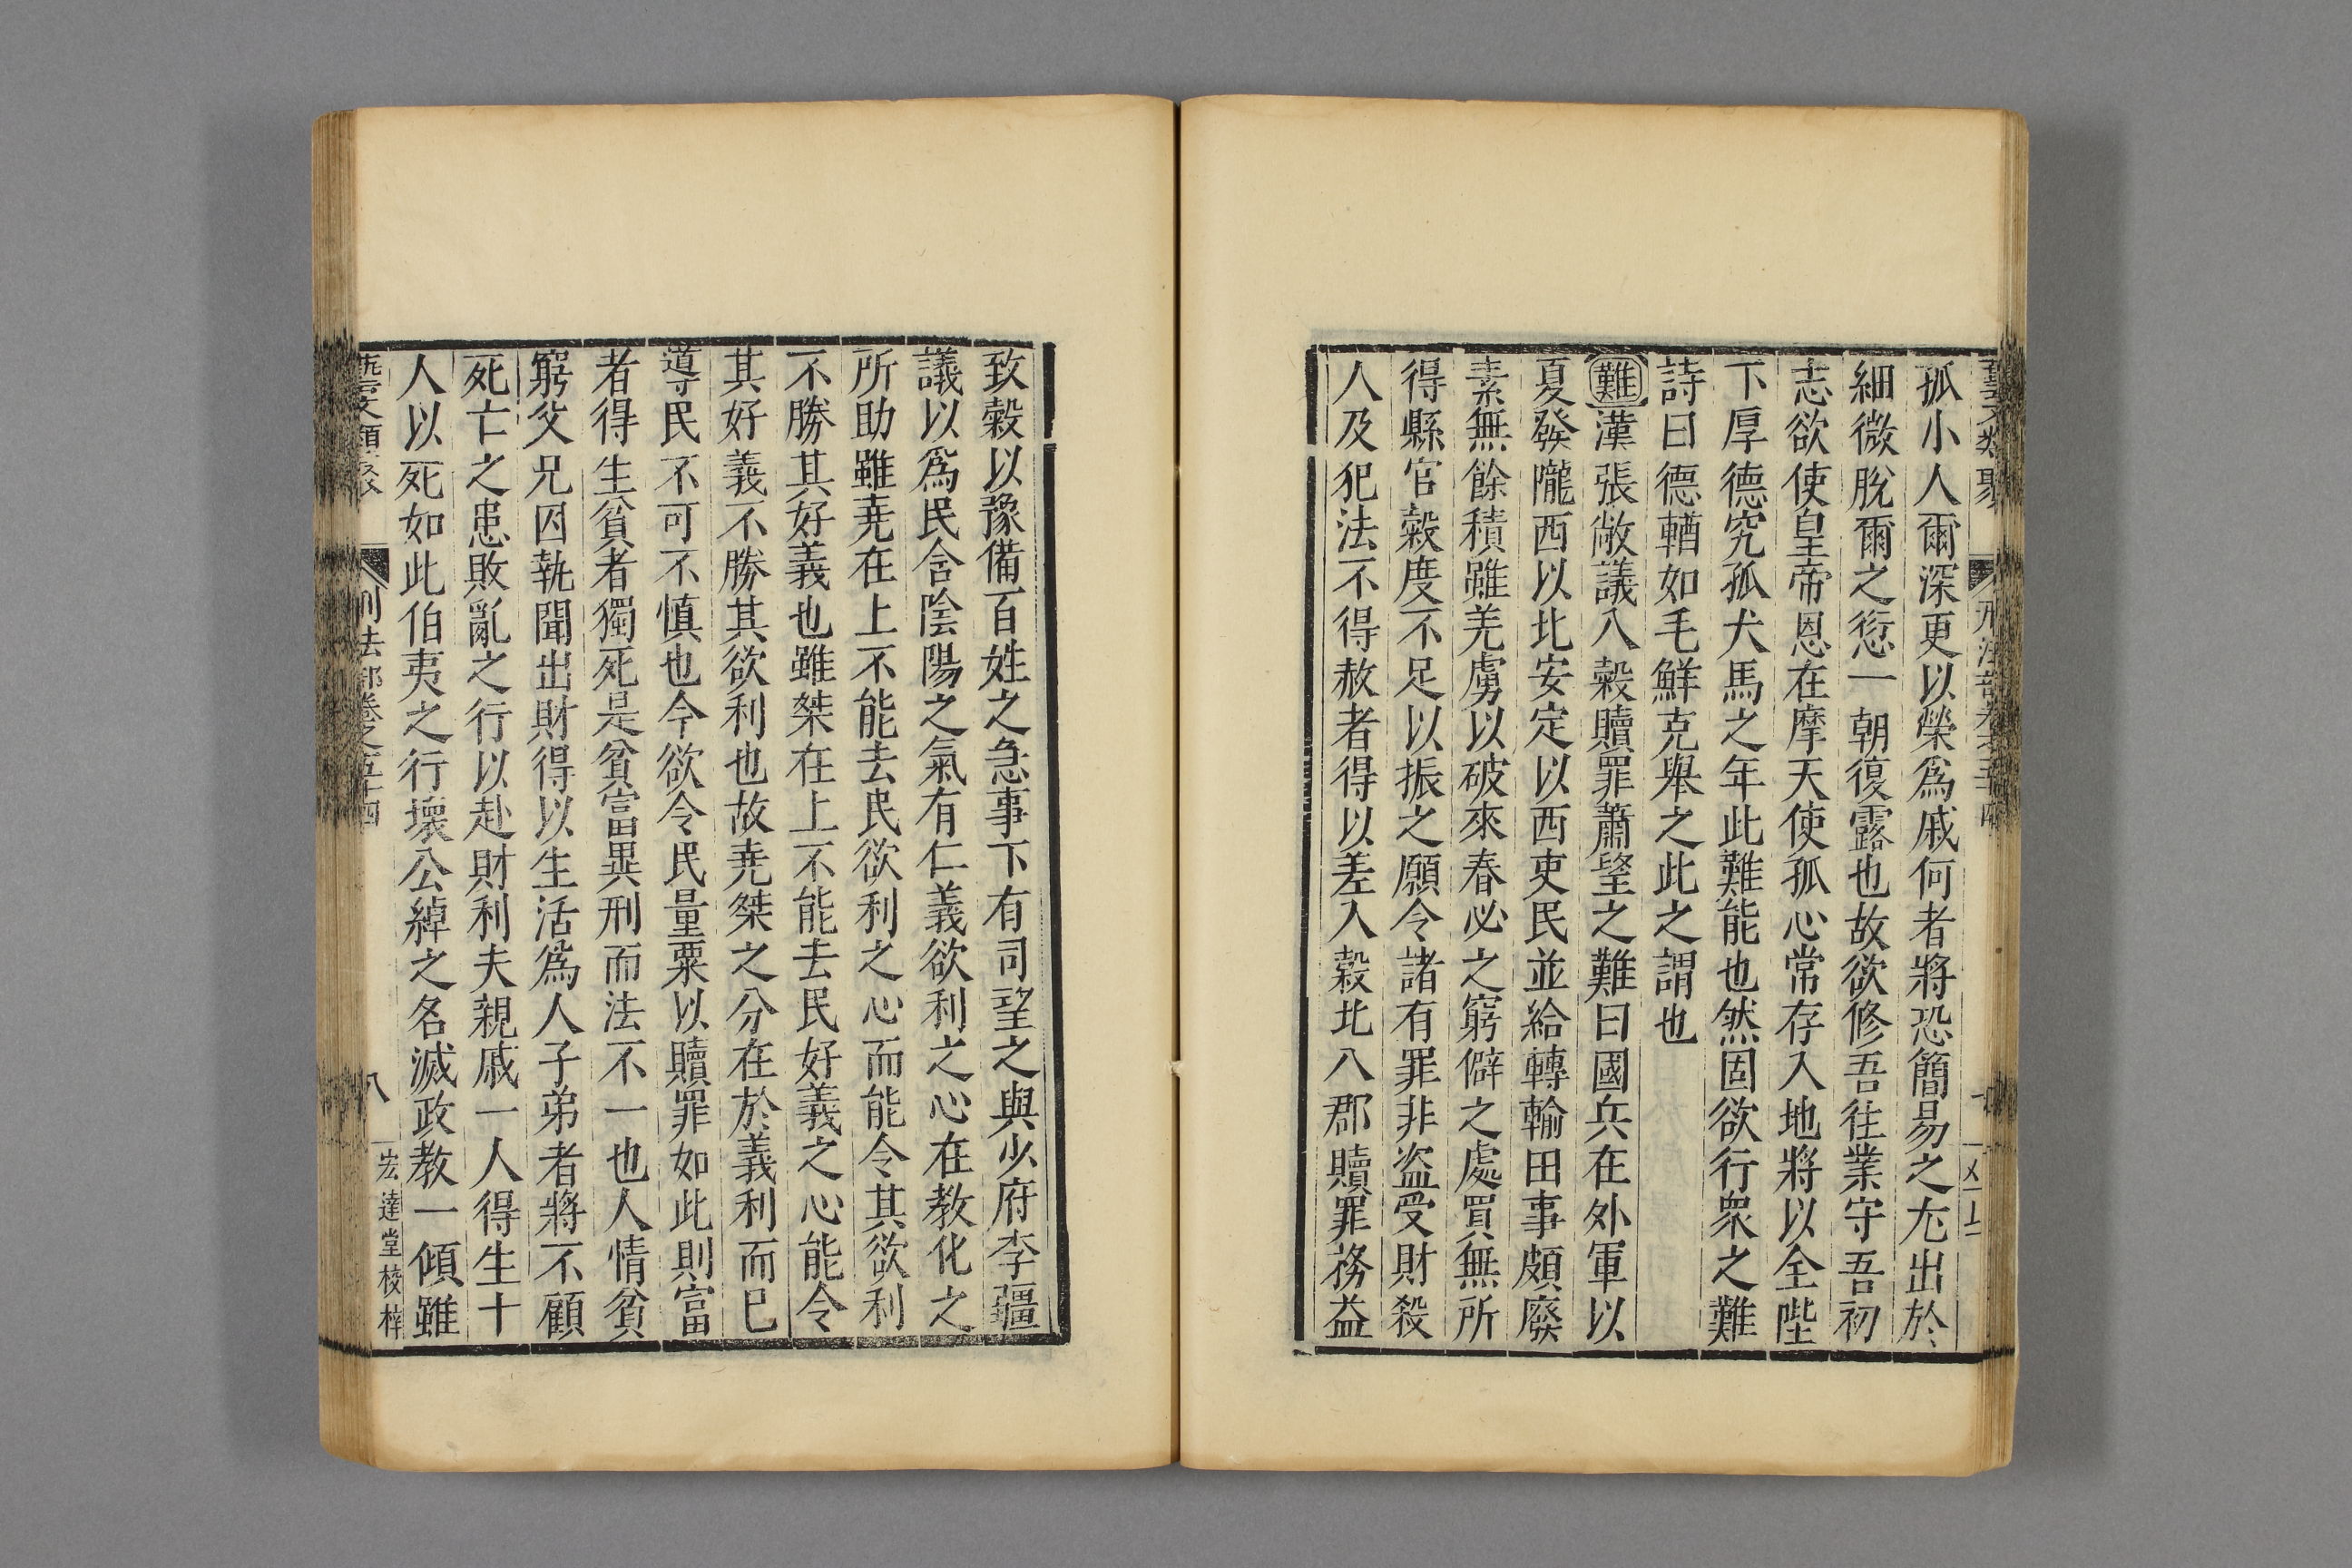 孤小人爾深更以榮爲戚何者將恐簡易之尤出於
細微脫爾之愆一朝復露也故欲修吾往業守吾初
志欲使皇帝恩在摩天使孤心常存入地將以全陛
下厚德究孤犬馬之年此難能也然固欲行衆之難
詩曰德輶如毛鮮克舉之此之謂也
難漢張敞議入榖贖罪蕭望之難曰國兵在外軍以
夏發隴西以北安定以西吏民並給轉輸田事頗廢
素無餘積雖羌虜以破來春必之窮僻之處買無所
得縣官榖度不足以振之願令諸有罪非盜受財殺
人及犯法不得赦者得以差入榖北八郡贖罪務益
致榖以豫備百姓之急事下有司望之與少府李疆
議以爲民含陰陽之氣有仁義欲利之心在教化之
所助雖堯在上不能去民欲利之心而能令其欲利
不勝其好義也雖桀在上不能去民好義之心能令
其好義不勝其欲利也故堯桀之分在於義利而已
導民不可不慎也今欲令民量粟以贖罪如此則富
者得生貧者獨死是貧富異刑而法不一也人情貧
窮父兄囚執聞出財得以生活爲人子弟者將不顧
死亡之患敗亂之行以赴財利夫親戚一人得生十
人以死如此伯夷之行壞公綽之名滅政教一傾雖
刑法部卷之五十四
八
宏達堂校梓